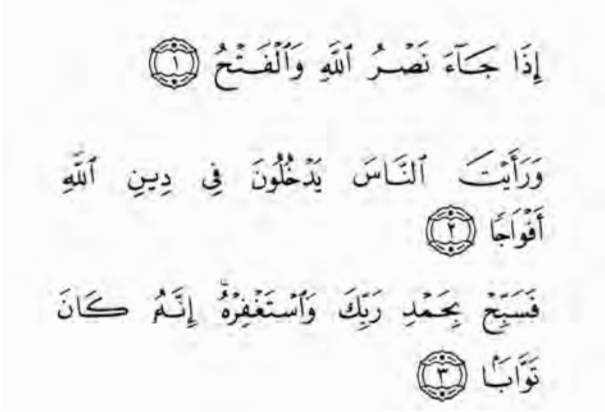 إِذَا جَآءَ نَصْرُ ٱللَّهِ وَٱلْفَتْحُ ١
وَرَأَيْتَ ٱلنَّاسَ يَدْخُلُونَ فِى دِينِ ٱللَّهِ
أَفْوَاجًا ٢
فَسَبِّحْ بِحَمْدِ رَبِّكَ وَٱسْتَغْفِرْهُ ۚ إِنَّهُۥ كَانَ
تَوَّابًۢا ٣